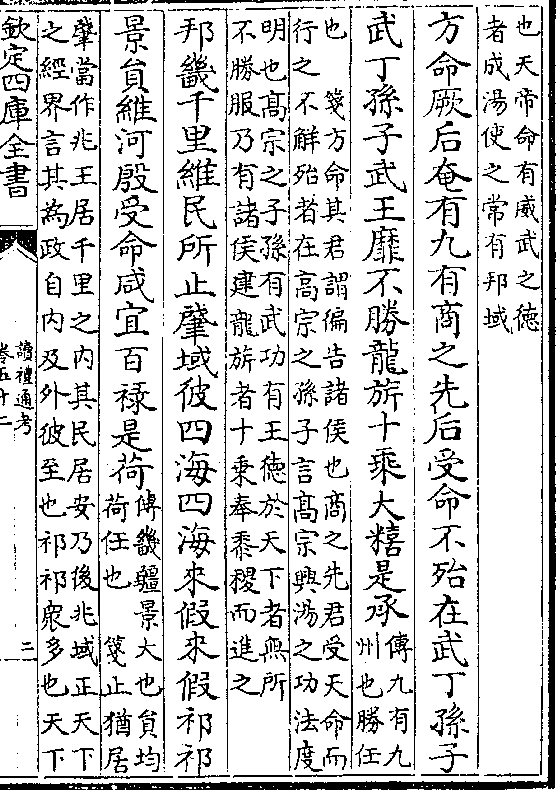 也天帝命有威武之德
者成湯使之常有邦域
方命厥后奄有九有商之先后受命不殆在武丁孫子
武丁孫子武王靡不勝龍旂十乘大糦是承
傳九有九
州也勝任
也 箋方命其君謂徧告諸侯也商之先君受天命而
行之不解殆者在高宗之孫子言髙宗興湯之功法度
明也髙宗之子孫有武功有王德於天下者無所
不勝服乃有諸侯建龍旂者十乘奉黍稷而進之
邦畿千里維民所止肇域彼四海四海來假來假祁祁
景員維河殷受命咸宜百祿是荷
傳畿疆景大也員均
荷任也 箋止猶居
肇當作兆王居千里之内其民居安乃後兆域正天下
之經界言其為政自内及外彼至也祁祁衆多也天下
欽定四庫全書
讀禮通考
卷五十二
二